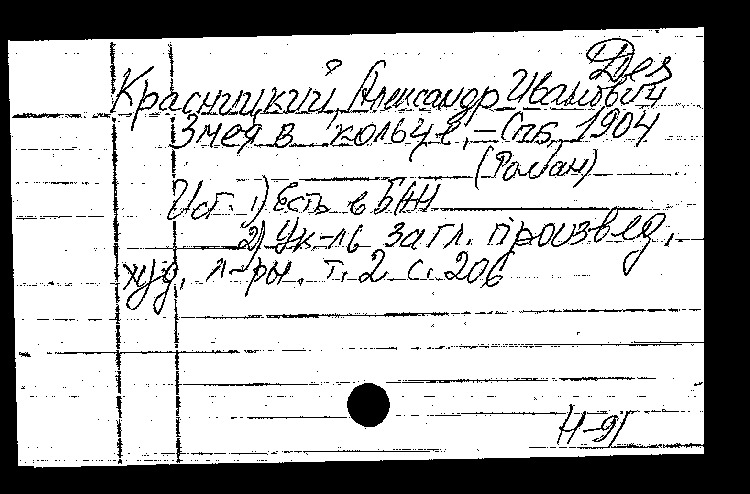 Дез
Красницкий, Александр Иванович
Змея в кольце, – Спб, 1904
(Роман)
Ист. 1) Есть в БАН
2) Ук-ль загл. произвед.
худ. л-ры. т. 2 с. 206